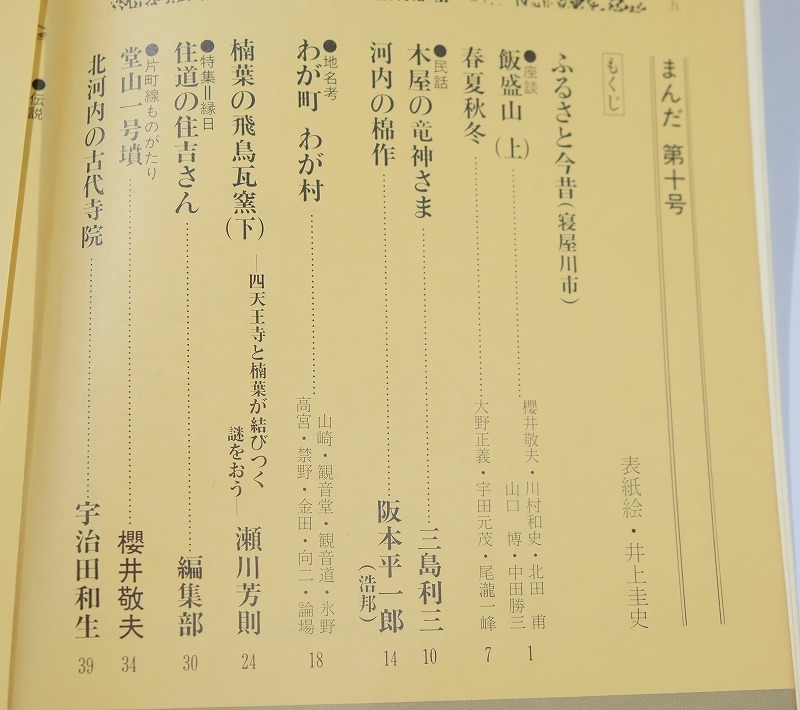 まんだ 第十号
もくじ
表紙絵・井上圭史
ふるさと今昔(寝屋川市)
●座談
飯盛山(上)
櫻井敬夫・川村和史・北田 甫
山口 博・中田勝三
1
春夏秋冬
大野正義・宇田元茂・尾瀧一峰
7
●民話
木屋の竜神さま
三島利三
10
河内の棉作
阪本平一郎
(浩邦)
14
●地名考
わが町 わが村
山崎・観音堂・観音道・氷野
高宮・禁野・金田・向二・論場
18
楠葉の飛鳥瓦窯(下)
―四天王寺と楠葉が結びつく
謎をおう―
瀬川芳則
24
●特集=縁日
住道の住吉さん
編集部
30
●片町線ものがたり
堂山一号墳
櫻井敬夫
34
北河内の古代寺院
宇治田和生
39
●伝説